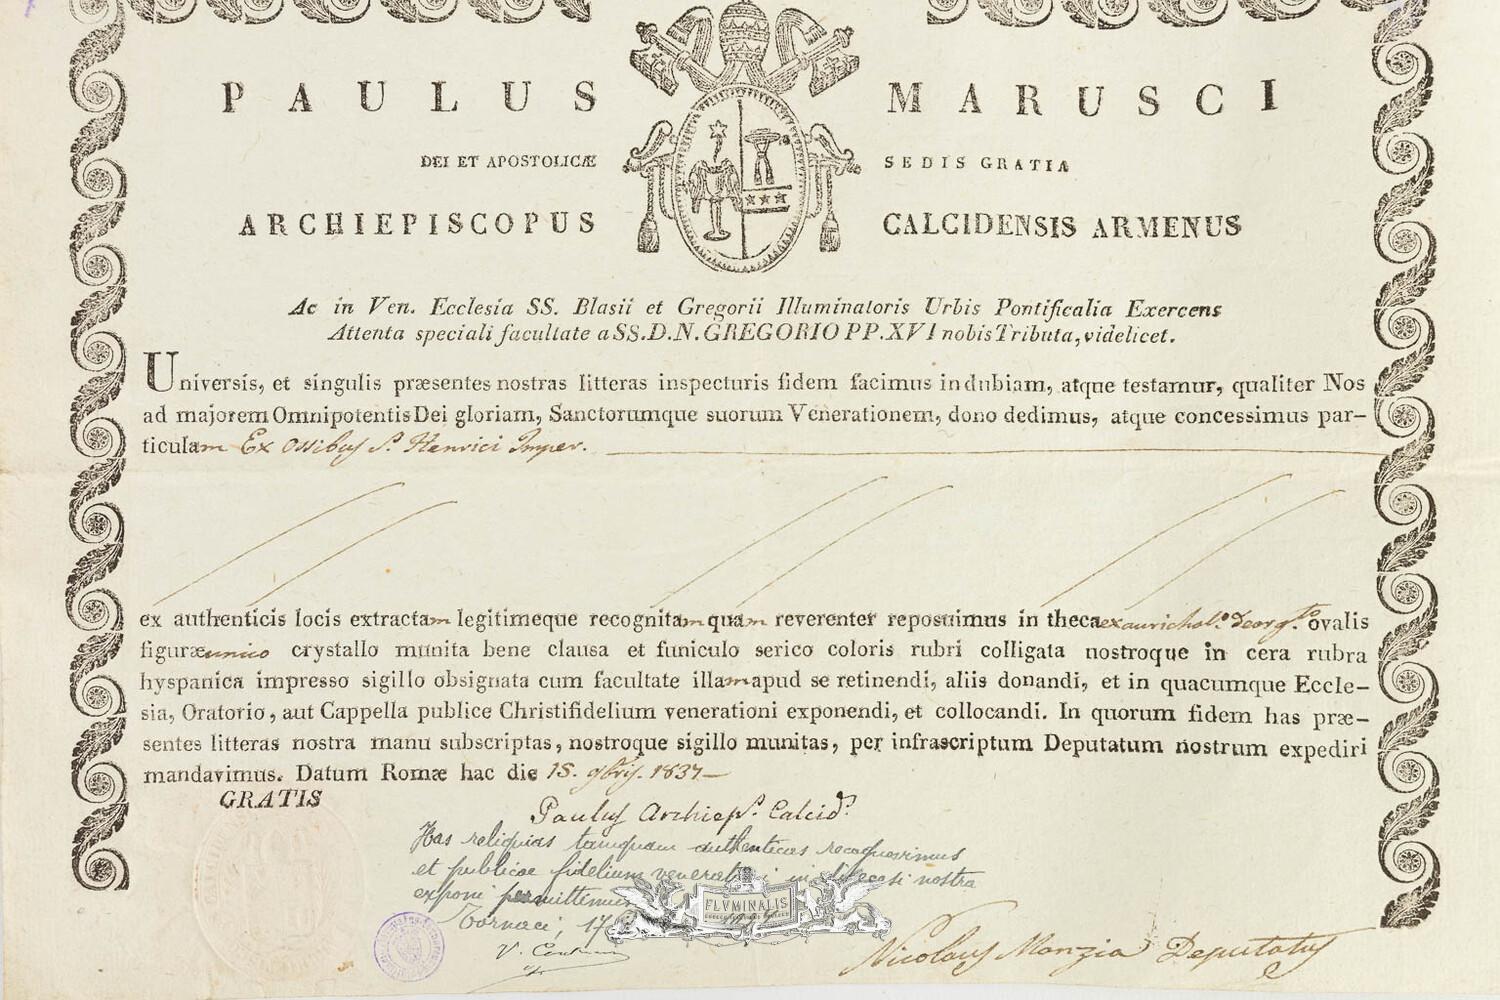 PAULUS MARUSCI
DEI ET APOSTOLICÆ SEDIS GRATIA
ARCHIEPISCOPUS CALCIDENSIS ARMENUS
Ac in Ven. Ecclesia SS. Blasii et Gregorii Illuminatoris Urbis Pontificalia Exercens
Attenta speciali facultate a SS.D.N. GREGORIO PP. XVI nobis Tributa, videlicet.
Universis, et singulis præsentes nostras litteras inspecturis fidem facimus indubiam, atque testamur, qualiter Nos
ad majorem Omnipotentis Dei gloriam, Sanctorumque suorum Venerationem, dono dedimus, atque concessimus par-
ticulam Ex Ossibus S. Henrici Imper.
ex authenticis locis extractam legitimeque recognitam quam reverenter reposuimus in theca ex aurichol.o deorg.to ovalis
figuræ unico crystallo munita bene clausa et funiculo serico coloris rubri colligata nostroque in cera rubra
hyspanica impresso sigillo obsignata cum facultate illam apud se retinendi, aliis donandi, et in quacumque Eccle-
sia, Oratorio, aut Cappella publice Christifidelium venerationi exponendi, et collocandi. In quorum fidem has præ-
sentes litteras nostra manu subscriptas, nostroque sigillo munitas, per infrascriptum Deputatum nostrum expediri
mandavimus. Datum Romæ hac die 15. 9bris. 1837
GRATIS
Paulus Archiep.s Calcid.s
Has reliquias tamquam authenticas recognovimus
et publicae fidelium venerationi in dioecesi nostra
exponi permittimus
Tornaci, 17
V. Cantineau
FLVMINALIS
Nicolaus Manzia Deputatus